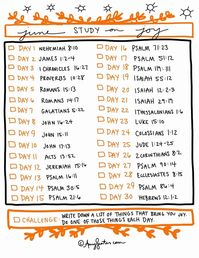 june STUDY on JOY
DAY 1 NEHEMIAH 8:10
DAY 2 JAMES 1:2-4
DAY 3 1 CHRONICLES 16:27
DAY 4 PROVERBS 10:28
DAY 5 ROMANS 15:13
DAY 6 ROMANS 14:17
DAY 7 GALATIANS 5:22
DAY 8 JOHN 16:24
DAY 9 JOHN 15:11
DAY 10 JOHN 17:13
DAY 11 ACTS 13:52
DAY 12 JEREMIAH 15:16
DAY 13 PSALM 16:11
DAY 14 PSALM 30:5
DAY 15 PSALM 5:11
DAY 16 PSALM 71:23
DAY 17 PSALM 51:12
DAY 18 PSALM 119:111
DAY 19 ISAIAH 55:12
DAY 20 ISAIAH 12:3
DAY 21 ISAIAH 29:19
DAY 22 1 THESSALONIANS 1:6
DAY 23 LUKE 15:10
DAY 24 COLOSSIANS 1:12
DAY 25 JUDE 1:24-25
DAY 26 2 CORINTHIANS 8:2
DAY 27 PSALM 90:14
DAY 28 ECCLESIASTES 3:15
DAY 29 PSALM 86:4
DAY 30 HEBREWS 12:1-2
CHALLENGE WRITE DOWN A LIST OF THINGS THAT BRING YOU JOY.
DO ONE OF THOSE THINGS EACH DAY.